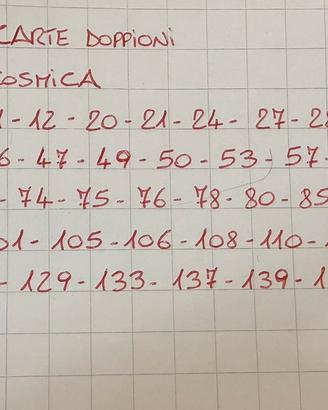 CARTE DOPPIONI
COSMICA
1 - 12 - 20 - 21 - 24 - 27 - 2
6 - 47 - 49 - 50 - 53 - 57 -
- 74 - 75 - 76 - 78 - 80 - 85
01 - 105 - 106 - 108 - 110 -
- 129 - 133 - 137 - 139 - 1